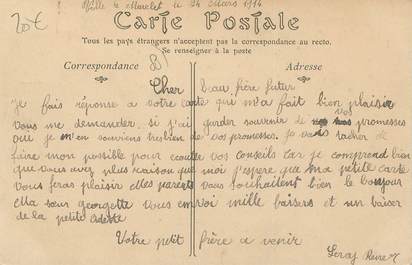 20€
le 24 Mars 1914
Carte Postale
Tous les pays étrangers n'acceptent pas la correspondance au recto.
Se renseigner à la poste
Correspondance
Adresse
Cher Beau frère futur
Je fais réponse a votre carte qui m'a fait bien plaisir
vous me demander si j'ai garder souvenir de vos promesses
oui je m'en souviens tres bien de vos promesses. Je vais tacher de
faire mon possible pour écouter vos conseils car je comprend bien
que vous avez plus raison que moi j'espere que ma petite carte
vous feras plaisir Mes parents vous souhaitent bien le bonjour
Ma sœur georgette vous envoi mille baisers et un baiser
de la petite
Votre petit frère a venir
Leray